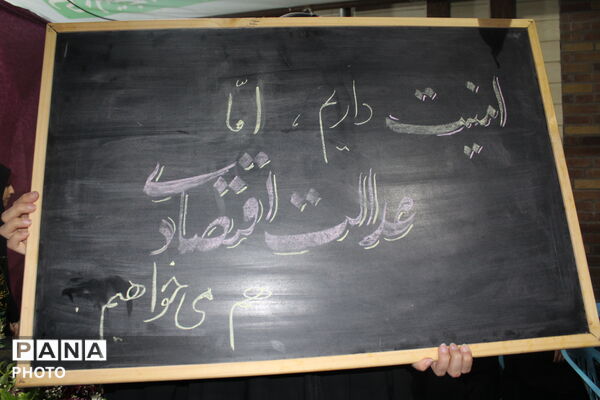 امنیت داریم، امّا
عدالت اقتصادی
هم می‌خواهیم.
PANA
PHOTO